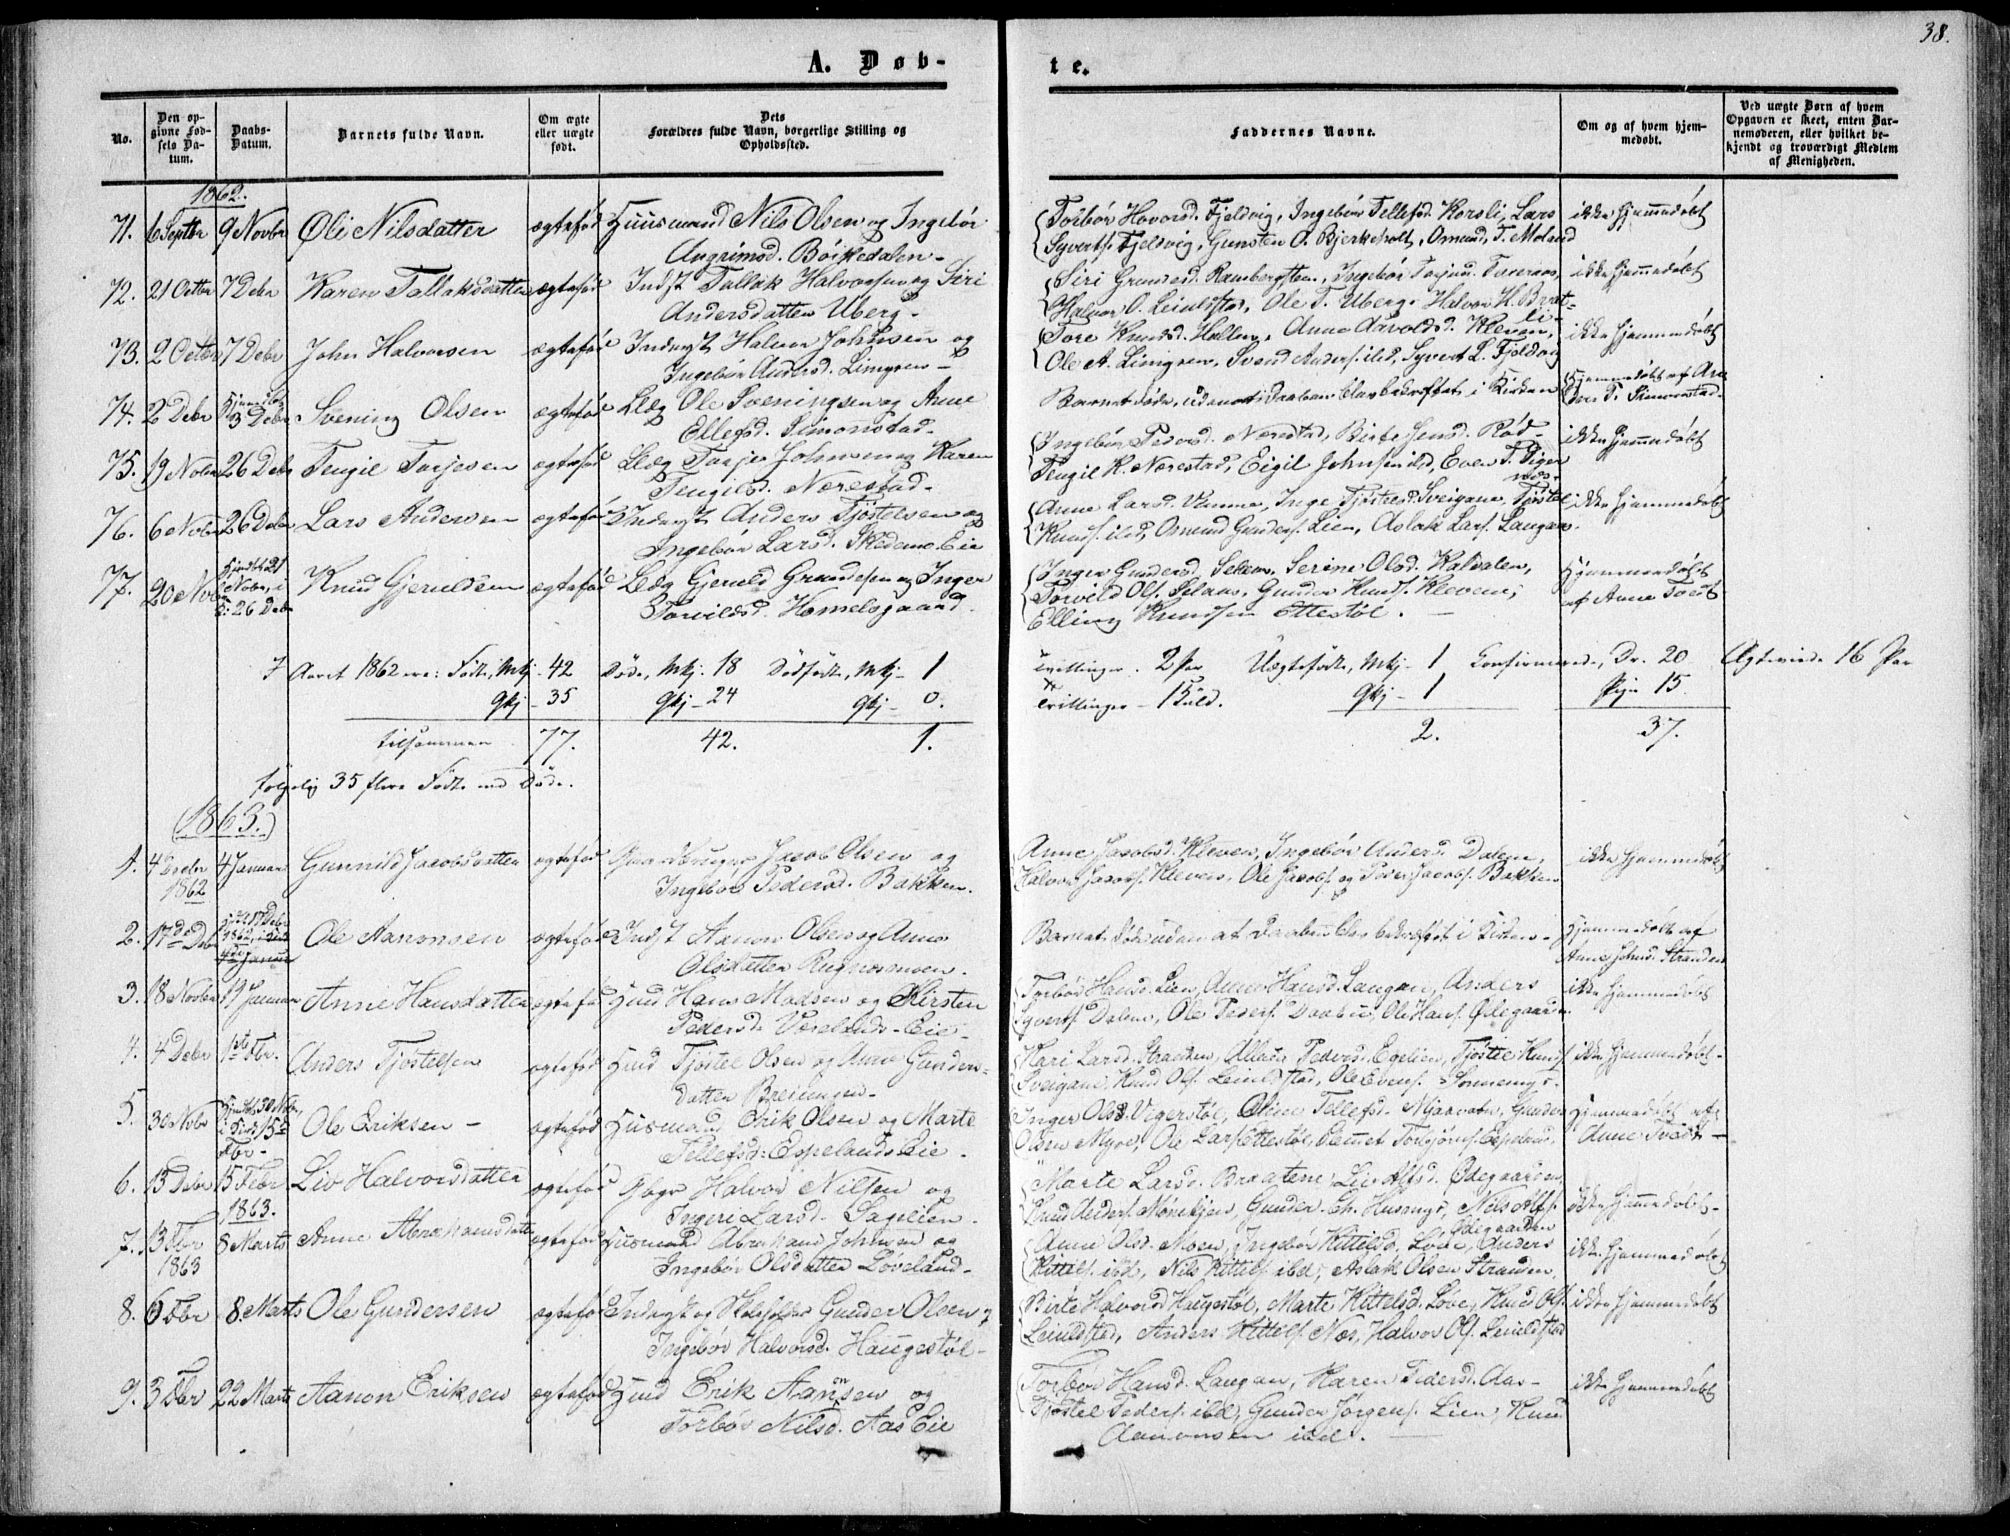 38.
A. Døb-
te.
No.
Den op-
givne Fød-
sels Da-
tum.
Daabs-
Datum.
Barnets fulde Navn.
Om ægte
eller uægte
født.
Dets
Forældres fulde Navn, borgerlige Stilling og
Opholdssted.
Faddernes Navne.
Om og af hvem hjem-
medøbt.
Ved uægte Børn af hvem
Opgaven er skeet, enten Bar-
nemoderen, eller hvilket be-
kjendt og troværdigt Medlem
af Menigheden.
1862.
71. 6 Septbr 9 Novbr Øli Nilsdatter ægtefød Huusmand Nils Olsen og Ingebör
Angrimsd. Böskedalen-
Torbör Hovorsd. Fjeldvig, Ingebör Tellefsd. Korsli, Lars
Syverts. Fjeldvig, Gunsten O. Bjerkeholt, Omund T. Moland
ikke hjemmedøbt
72. 21 Octbr 7 Debr Karen Tallaksdatter ægtefød Indst Tallak Halvorsen og Siri
Andersdatter Uberg-
Siri Gundersd. Rambergsteen, Ingebör
Halvor O. Leiulstad, Ole T. Uberg, Halvor K. Brat-
li-
ikke hjemmedøbt
73. 2 Octbr 7 Debr John Halvorsen ægtefød Inderst Halvor Johnsen og
Ingebör Andersd. Limgren-
Tore Knudsd. Hullen, Anne Aavoldsd. Kleven,
Ole A. Limgren, Svend Anders. ibd, Syvert L. Fjeldvig
ikke hjemmedøbt
74. 2 Debr Hjemdøbt 3 Debr Svening Olsen ægtefød Llæg Ole Sveningsen og Anne
Ellefsd. Simonstad.
Barnet døde, uden at Daaben blev bekræftet i Kirken
Hjemmedøbt af An
ders T. Simonstad.
75. 19 Novbr 26 Debr Tengil Torjesen ægtefød Llæg Torje Johnsen og Karen
Tengilsd. Nærestad-
Ingebör Pedersd. Nærestad, Birte Jensd. Rød-
Tengil K. Nærestad, Eigil Johnsen ibd, Even T. Viger
ikke hjemmedøbt
76. 6 Novbr 26 Debr Lars Andersen ægtefød Inderst Anders Tjöstelsen og
Ingebör Larsd. Skedemo Eie
Anne Larsd. Vimme, Inge Tjöstelsd. Sveigane, Tjöstel
Knuds. ibd, Omund Gunders. Lien, Aslak Lars. Laugan.
ikke hjemmedøbt
77. 20 Novbr Hjemdøbt 21
Novbr, i
K. 26 Debr
Knud Gjeruldsen ægtefød Llæg Gjeruld Gundersen og Inger
Torvildsd. Homelsgaard.
Inger Gundersd. Selaas, Serine Olsd. Kalvalen,
Torvild Ols. Selaas, Gunder Knuds. Kleven,
Elling Knudsen Ettestöl.
Hjemmedøbt
af Anne Tveit
I Aaret 1862 ere: Födte, Mkj - 42 Döde, Mkj. 18 Dödfödte, Mkj - 1
Tvillinger. 2 Par Uægtefödte, Mkj - 1 Confirmerede, Dr. 20 Ægteviede 16 Par
Qkj - 35 Qkj - 24 Qkj - 0.
Trillinger - 1 Kuld. Qkj - 1 Pig- 15
tilsammen 77. 42. 1.
2. 37.
følgelig 35 flere Födte end Döde.
(1863.)
1. 4 Decbr
1862
4 Januar Gunnild Jacobsdatter ægtefød Gaardbruger Jacob Olsen og
Ingebör Pedersd. Bakken.
Anne Jacobsd. Kleven, Ingebör Andersd. Dalene,
Halvor Jacobs. Kleven, Ole Jacobs. og Peder Jacobs. Bakken
ikke hjemmedøbt
2. 17de Debr Ole Aanonsen ægtefød Indst Aanon Olsen og Anne
Olsdatter
Barnet døde uden at Daaben blev bekræftet i Kirken-
Hjemmedøbt af
Anne Johnsd. Stranden
3. 18 Novbr 17 Januar Anne Hansdatter ægtefød Huud Hans Madsen og Kirsten
Pedersd. Væselands-Eie
Torbör Hansd. Lien, Anne Hansd. Laugan, Anders
Syverts. Dalene, Ole Peders. Daabu, Ole Hans. Ødegaarden
ikke hjemmedøbt
4. 4 Debr 1ste Fbr. Anders Tjöstelsen ægtefød Huud Tjöstel Olsen og Anne Gunders-
datter
Kari Larsd. Stranden, Pedersd. Egelien, Tjöstel Knuds.
Sveigane, Knud Ols. Leiulstad, Ole Evens.
ikke hjemmedøbt-
5. 30 Novbr Hjemdbt 30 Novbr,
i Kirk. 15de
Fbr-
Ole Eriksen - ægtefød Husmand Erik Olsen og Marte
Tellefsd: Espelands Eie.
Inger Olsd. Vigerstöl, Oline Tellefsd. Mjaavatn, Gunder
Olsen Myre, Ole Lars. Ettestöl, Torbjörns. Espeland,
Hjemmedøbt af
Anne Tveit -
6. 13 Debr 15 Febr Liv Halvorsdatter ægtefød Gbgr Halvor Nilsen og
Ingeri Larsd. Saglien.
Marte Larsd. Braatene, Liv Alfsd. Ødegaarden,
Knud Anders. Mönekjen, Gunder Ch. Husmyr, Nils Alfs.
Ødegaarden
ikke hjemmedøbt-
1863.
7. 13 Fbr
1863
8 Marts Anne Abrahamsdatter ægtefød Husmand Abraham Johnsen og
Ingebör Olsdatter Løveland-
Anne Olsd. Moen, Ingebör Kittilsd. Löve, Anders
Kittils. ibd, Nils Kittils. ibd, Aslak Olsen Stranden.
ikke hjemmedøbt
8. 6 Fbr 8. Marts Ole Gundersen ægtefød Inderst og Skoleholder Gunder Olsen og
Ingebör Halvorsd. Haugestöl-
Birte Halvorsd. Haugestöl, Marte Kittelsd. Löve, Knud Ols.
Leiulstad, Anders Kittils. Næs, Halvor Ols. Leiulstad
ikke hjemmedøbt
9. 3 Fbr 22 Marts Aanon Eriksen ægtefød Huud Erik Aanonsen og
Torbör Nilsd. Aas Eie
Torbör Hansd. Laugan, Karen Pedersd. Aas-
Tjöstel Peders. ibd, Gunder Jörgens. Lien, Knud
Aanonsen ibd.
ikke hjemmedøbt